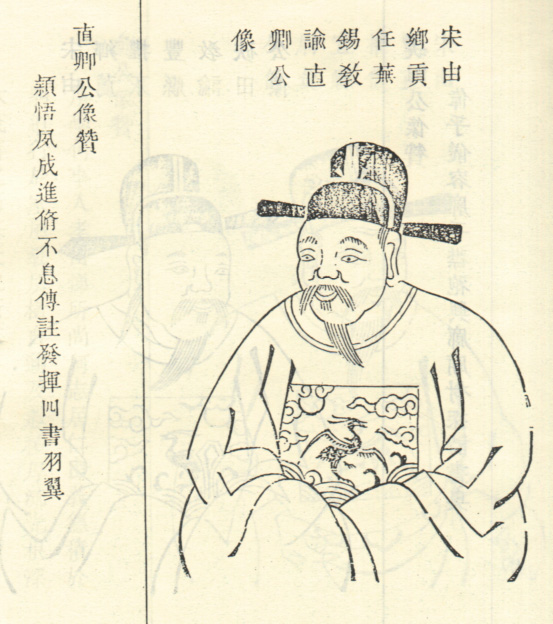 宋由
鄉貢
任蕪
錫教
諭直
卿公
像
直卿公像贊
穎悟夙成進脩不息傳註發揮四書羽翼